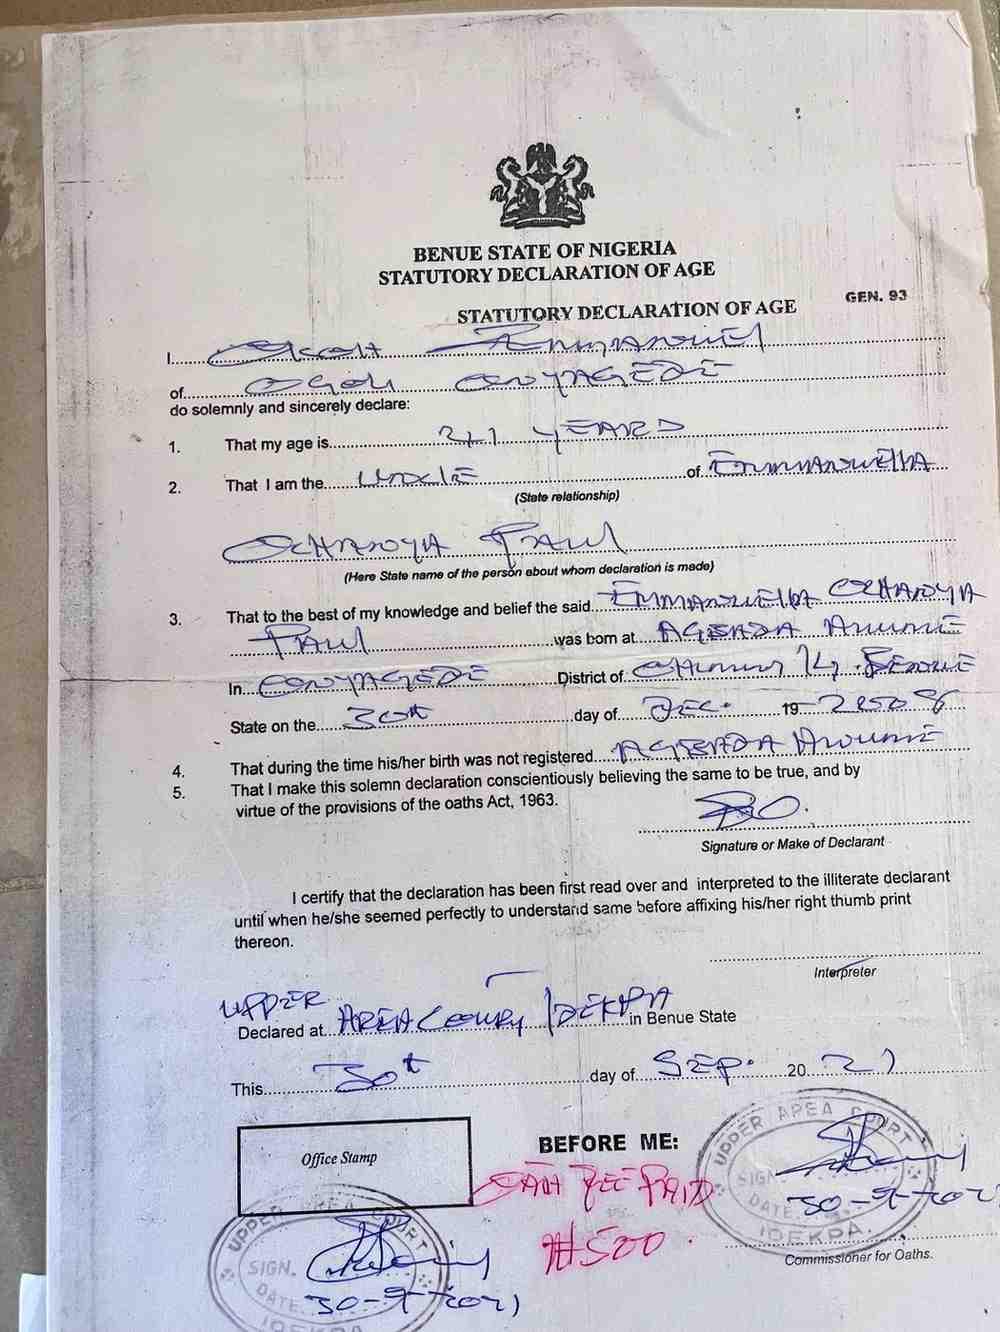 BENUE STATE OF NIGERIA
STATUTORY DECLARATION OF AGE
GEN. 93
STATUTORY DECLARATION OF AGE
I.......... Okoh Emmanuel
of.......... Ogoli OWUYAGEDE
do solemnly and sincerely declare:
1. That my age is.......... YEARS
2. That I am the.......... UNCLE of EMMANUELLA
(State relationship)
OCHANYA PAUL
(Here State name of the person about whom declaration is made)
3. That to the best of my knowledge and belief the said EMMANUELLA OCHANYA
PAUL was born at AGBADA
In OWUYAGEDE District of BENUE
State on the 30th day of DEC. 19
4. That during the time his/her birth was not registered AGBADA
5. That I make this solemn declaration conscientiously believing the same to be true, and by
virtue of the provisions of the oaths Act, 1963.
Signature or Make of Declarant
I certify that the declaration has been first read over and interpreted to the illiterate declarant
until when he/she seemed perfectly to understand same before affixing his/her right thumb print
thereon.
Interpreter
UPPER
Declared at AREA COURT IDEKPA in Benue State
This 30t day of SEP. 20 21
Office Stamp
BEFORE ME:
FEE PAID
₦500
UPPER AREA COURT
SIGN.
DATE
30-9-2021
IDEKPA
Commissioner for Oaths.
UPPER AREA COURT
SIGN.
DATE
30-9-2021
IDEKPA